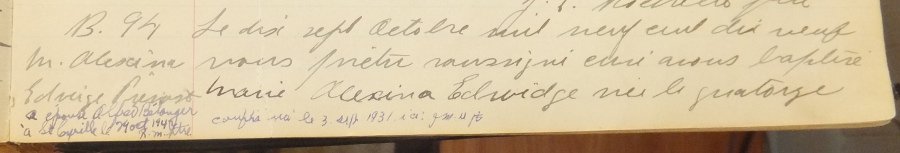 B. 94
M. Alexina
Edwige Prévost
a épousé Alfred Bélanger
à St Cyrille le 29 oct 1947
Le dix sept Octobre mil neuf cent dix neuf
nous prêtre soussigné curé avons baptisé
Marie Alexina Edwidge née le quatorze
confirmée le 3 sept 1931 ici